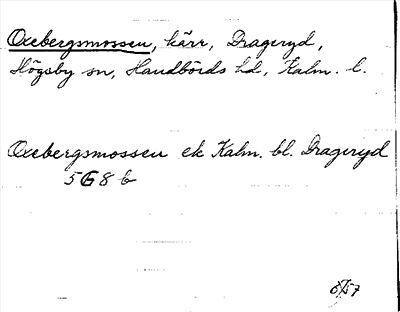 Oxebergsmossen, kärr, Drageryd,
Högsby sn, Handbörds hd, Kalm. l.
Oxebergsmossen ek Kalm. bl. Drageryd
568 b